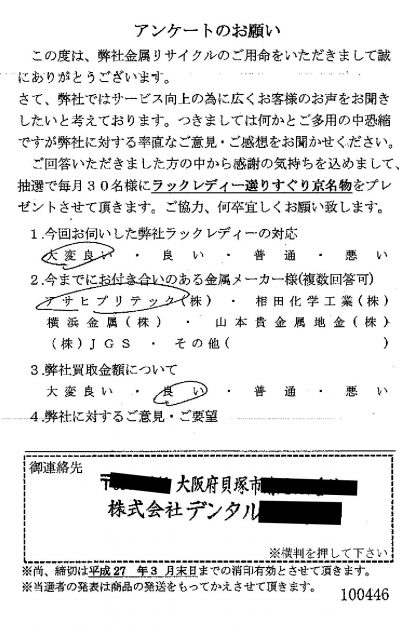 アンケートのお願い
この度は、弊社金属リサイクルのご用命をいただきまして誠
にありがとうございます。
さて、弊社ではサービス向上の為に広くお客様のお声をお聞き
したいと考えております。つきましては何かとご多用の中恐縮
ですが弊社に対する率直なご意見・ご感想をお聞かせください。
ご回答いただきました方の中から感謝の気持ちを込めまして、
抽選で毎月30名様にラックレディー選りすぐり京名物をプレ
ゼントさせて頂きます。ご協力、何卒宜しくお願い致します。
1.今回お伺いした弊社ラックレディーの対応
大変良い ・ 良い ・ 普通 ・ 悪い
2.今までにお付き合いのある金属メーカー様(複数回答可)
アサヒプリテック(株) ・ 相田化学工業(株)
横浜金属(株) ・ 山本貴金属地金(株)
(株)JGS ・ その他( )
3.弊社買取金額について
大変良い ・ 良い ・ 普通 ・ 悪い
4.弊社に対するご意見・ご要望
御連絡先
〒 大阪府貝塚市
株式会社デンタル
※横判を押して下さい
※尚、締切は平成27 年3月末日までの消印有効とさせて頂きます。
※当選者の発表は商品の発送をもってかえさせて頂きます。
100446